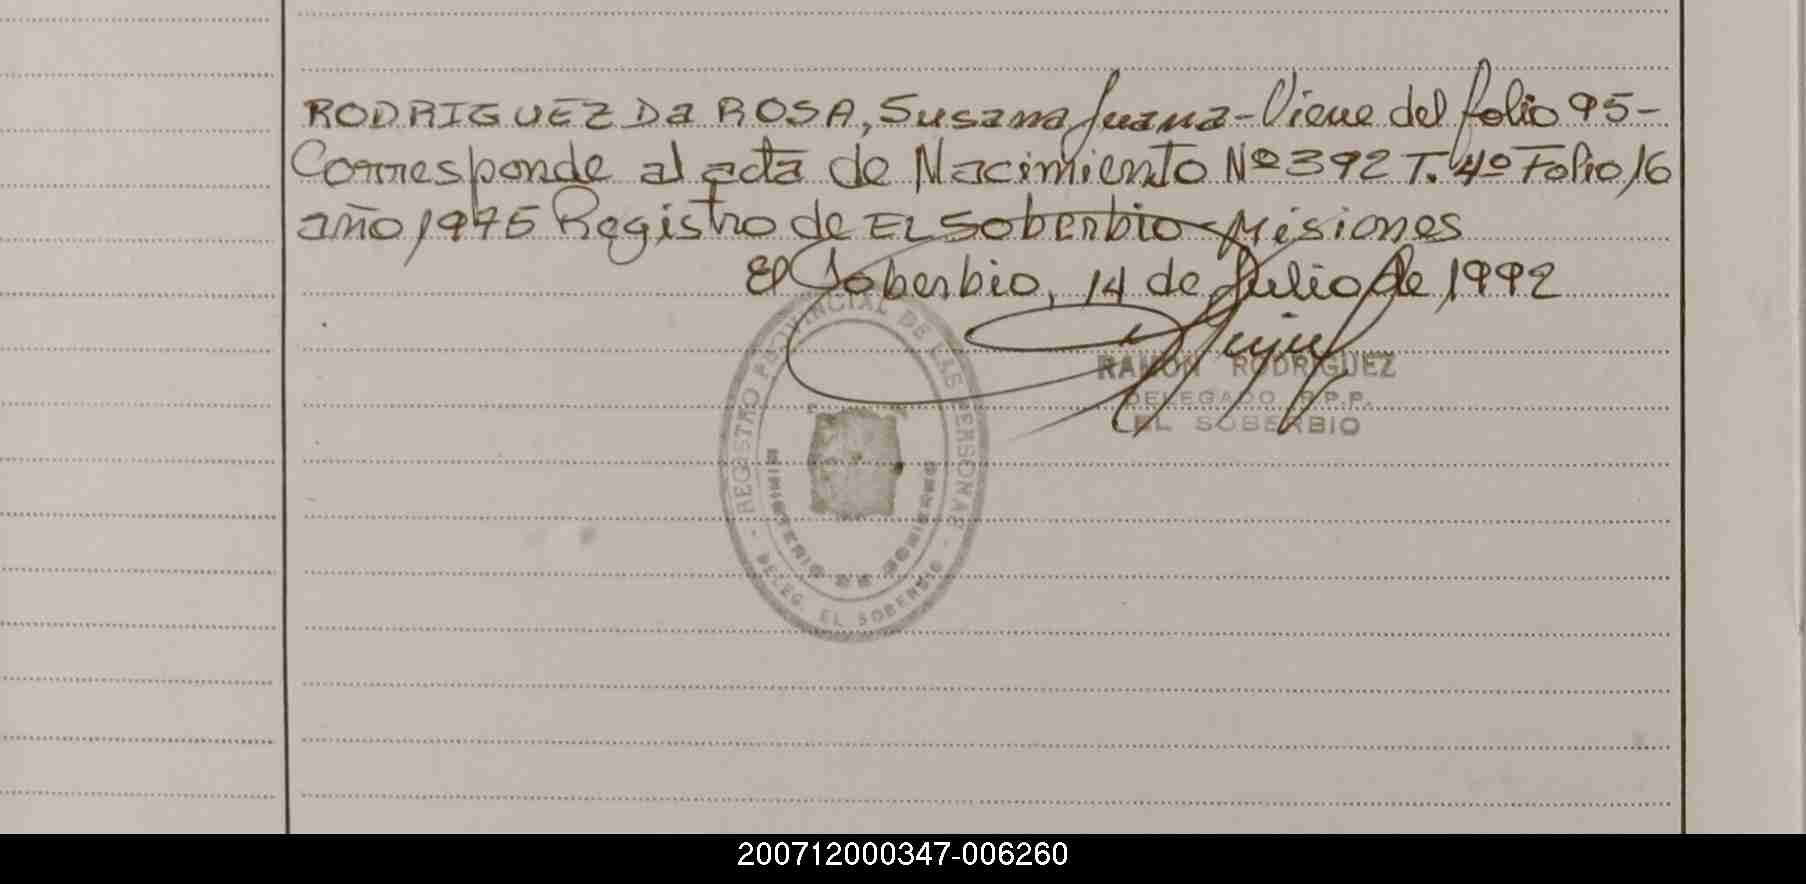 RODRIGUEZ Da ROSA, Susana Juana - Viene del folio 95 -
Corresponde al acta de Nacimiento Nº 392 T. 4º Folio 16
año 1975 Registro de EL Soberbio - Misiones
El Soberbio, 14 de Julio de 1992
RAMON RODRIGUEZ
DELEGADO R.P.P.
EL SOBERBIO
REGISTRO PROVINCIAL DE LAS PERSONAS
MINISTERIO DE GOBIERNO
- DELEG. EL SOBERBIO -
200712000347-006260